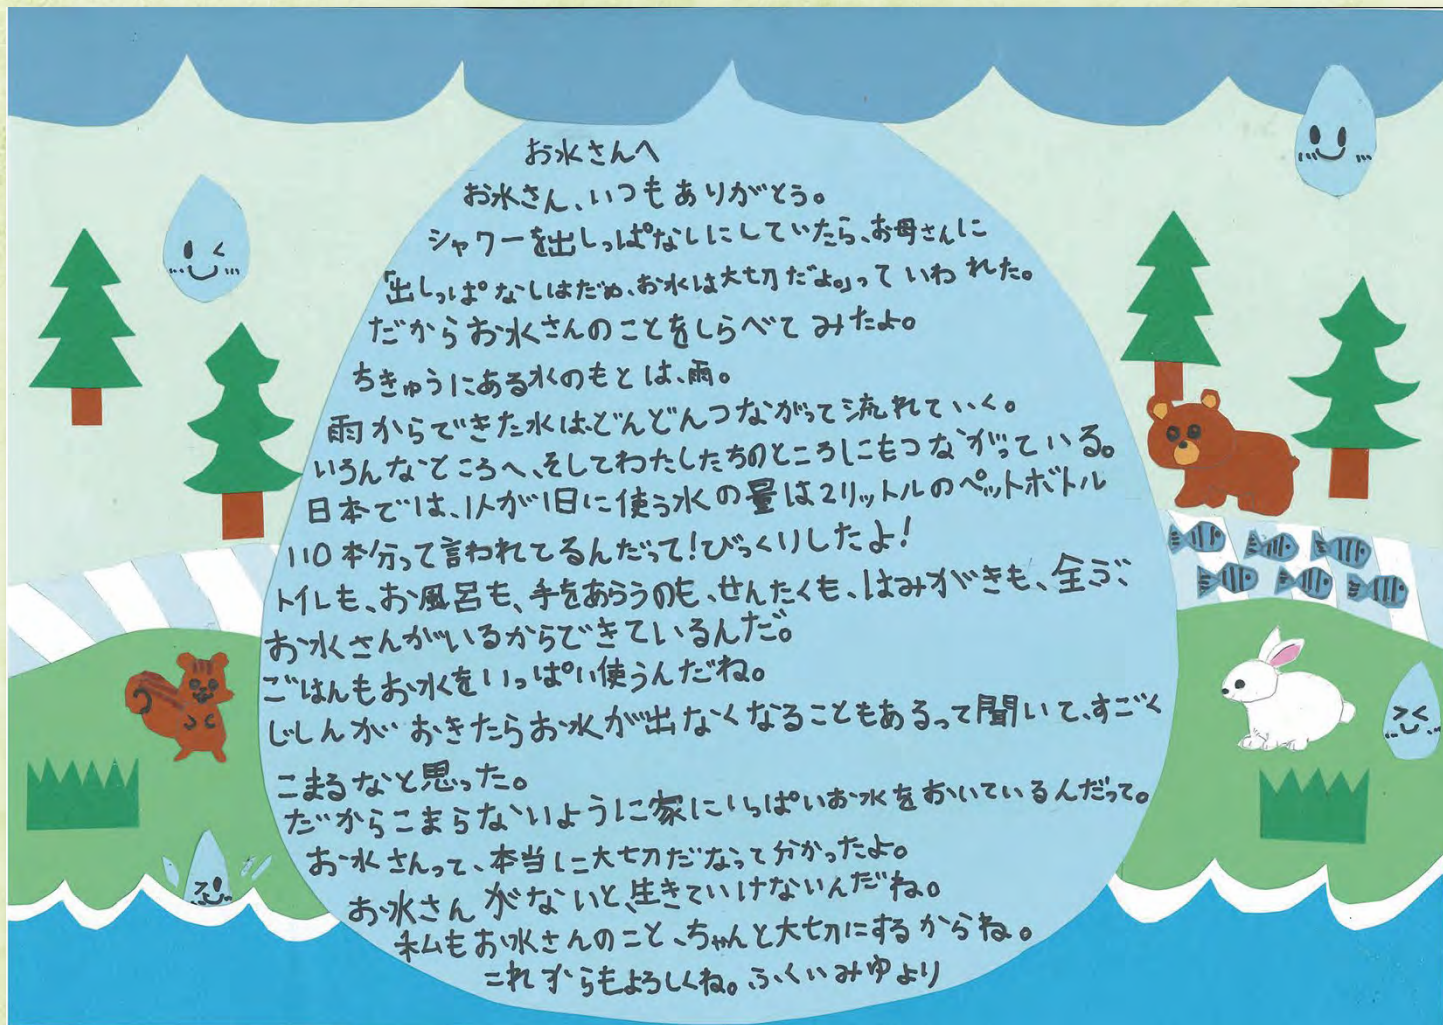 お水さんへ
お水さん、いつもありがとう。
シャワーを出しっぱなしにしていたら、お母さんに
「出しっぱなしはだめ、お水は大切だよ。」っていわれた。
だからお水さんのことをしらべてみたよ。
ちきゅうにある水のもとは、雨。
雨からできた水はどんどんつながって流れていく。
いろんなところへ、そしてわたしたちのところにもつながっている。
日本では、1人が1日に使う水の量は2リットルのペットボトル
110本分って言われてるんだって!びっくりしたよ!
トイレも、お風呂も、手をあらうのも、せんたくも、はみがきも、全ぶ、
お水さんがいるからできているんだ。
ごはんもお水をいっぱい使うんだね。
じしんがおきたらお水が出なくなることもあるって聞いて、すごく
こまるなと思った。
だからこまらないように家にいっぱいお水をおいているんだって。
お水さんって、本当に大切だなって分かったよ。
お水さんがないと、生きていけないんだね。
私もお水さんのこと、ちゃんと大切にするからね。
これからもよろしくね。ふくいみゆより